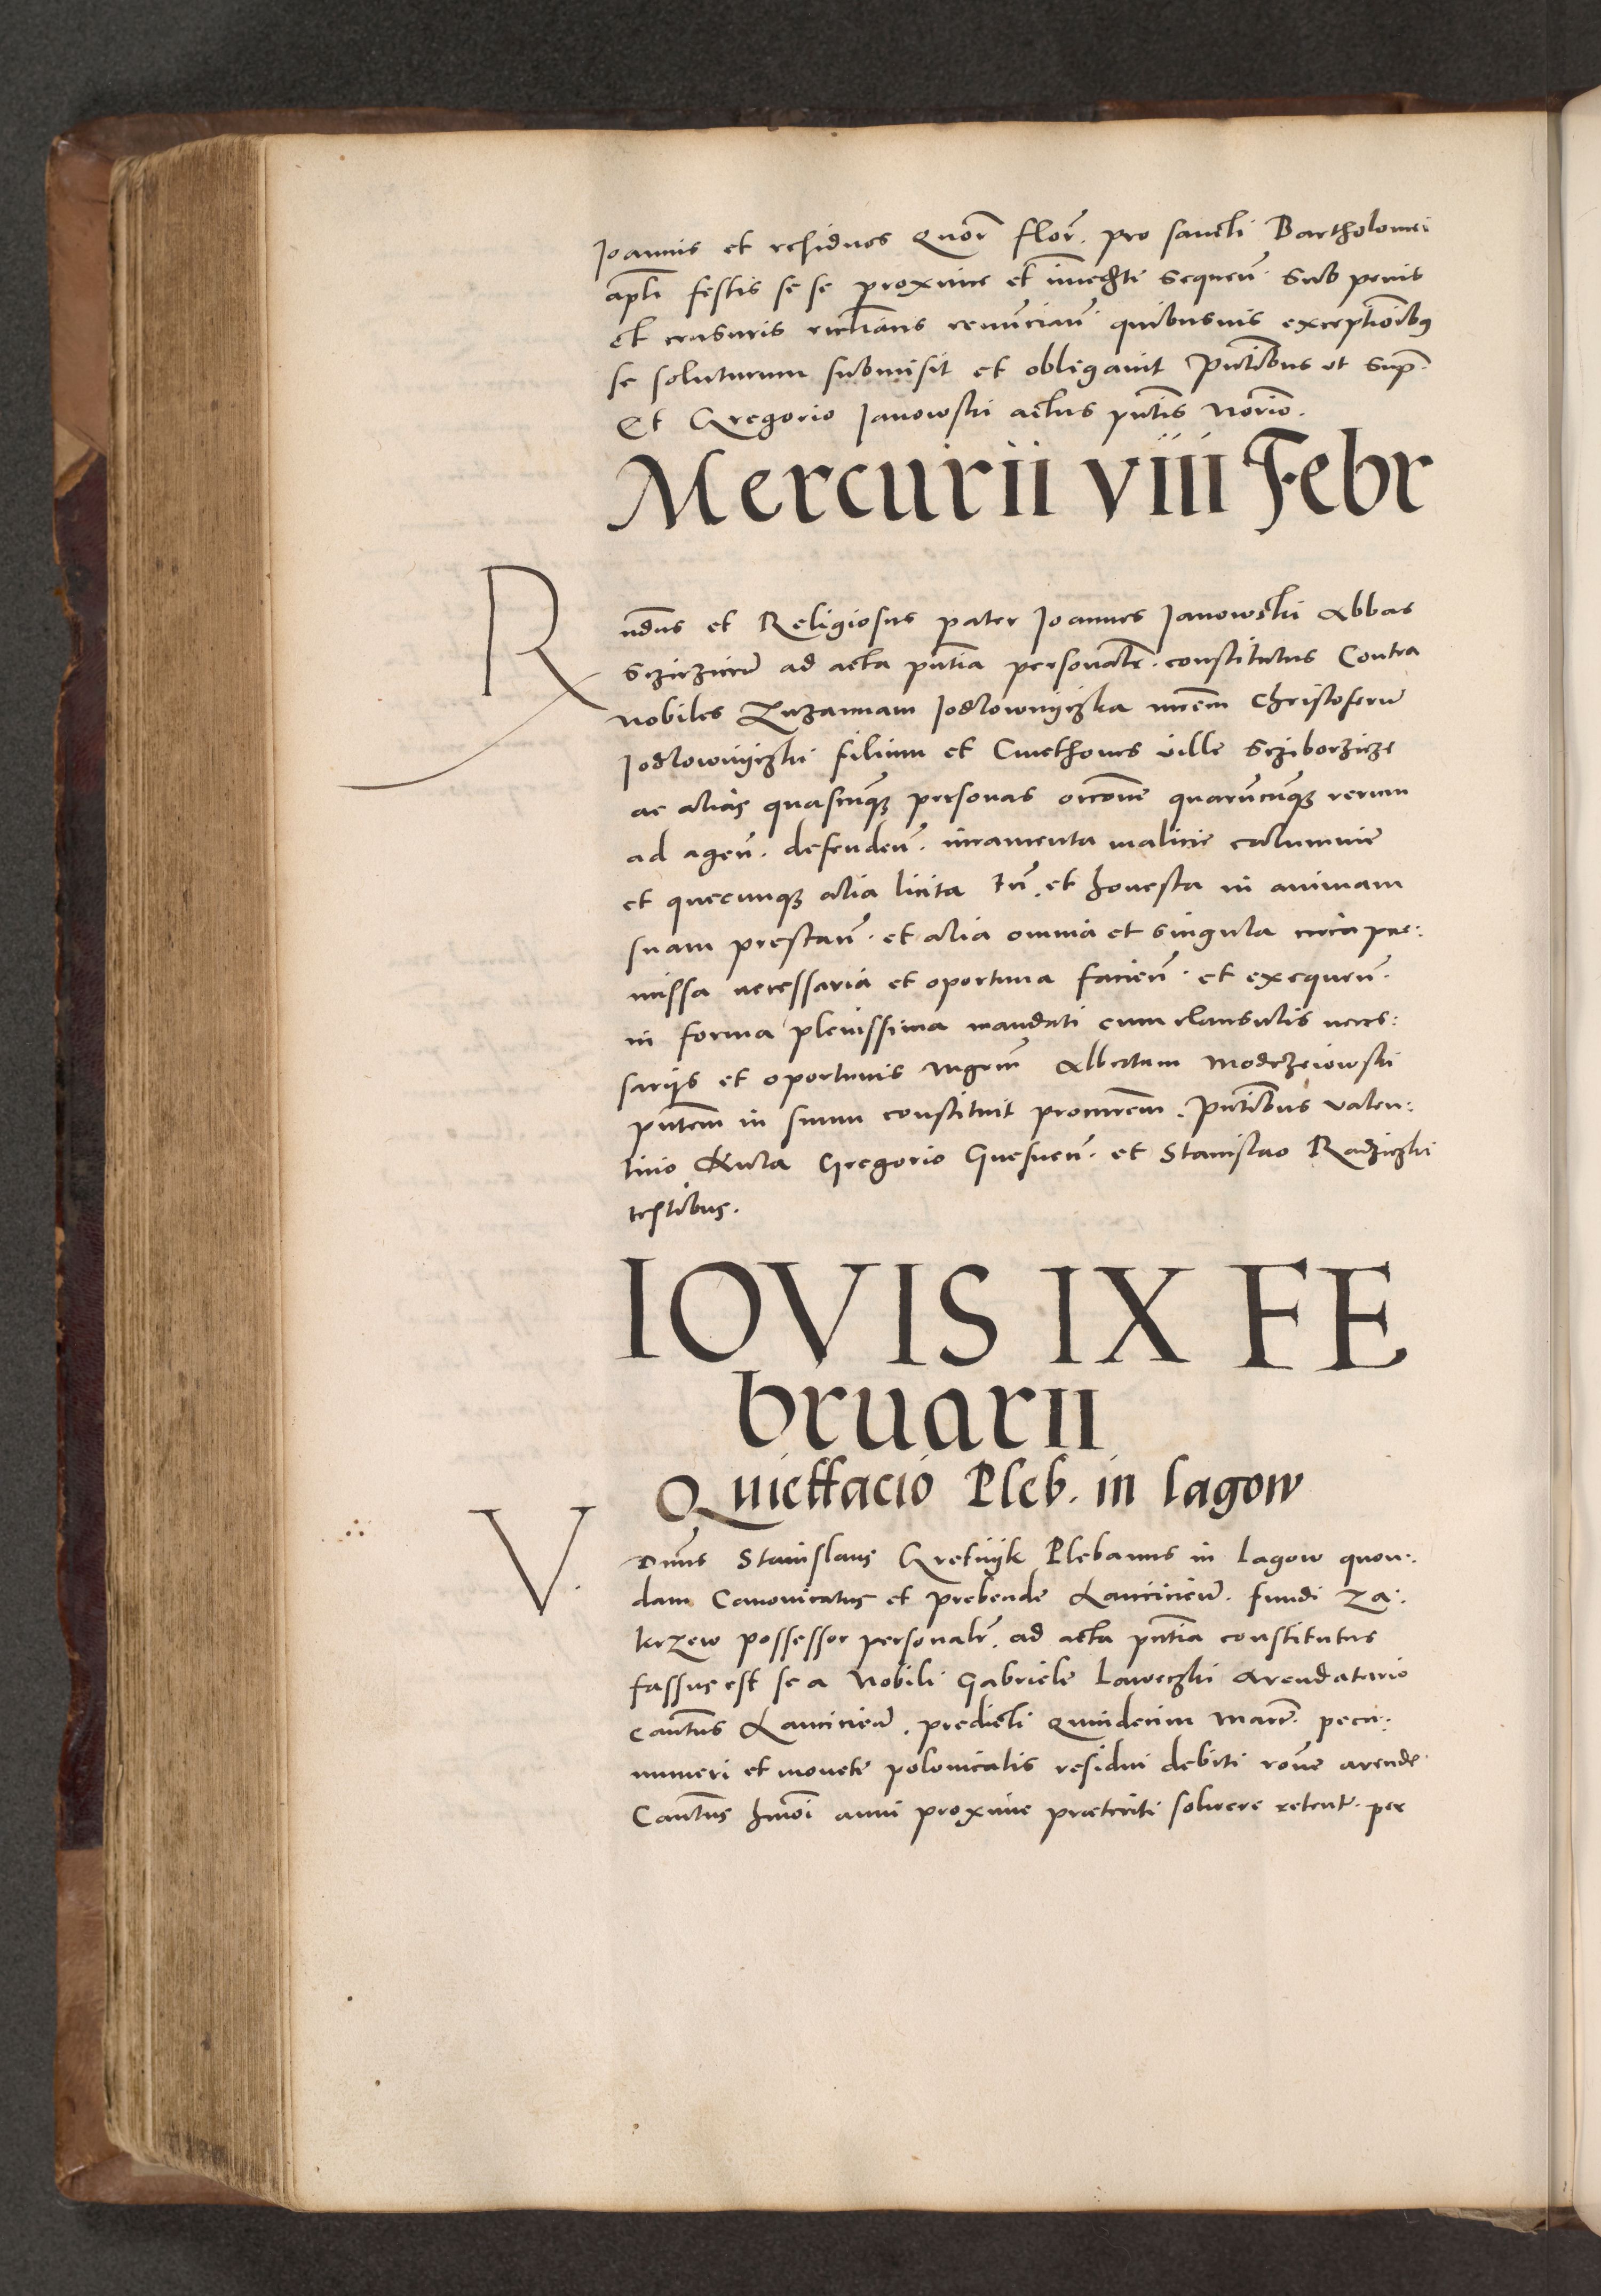 Joannis et residuos quor flor. pro sancti Bartholomei
apli festis se se proxime et immedte sequen. sub penis
et censuris ecclianis renuncian. quibusvis exceptionibus
se soluturum submisit et obligavit pntibus ut sup.
Et Gregorio Janowski actus pntis notrio.
Mercurii viii Febr
R
ndus et Religiosus pater Joannes Janowski Abbas
Scziczicen ad acta pntia personalr. constitutus Contra
nobiles Zuzannam Jodlownyczka mrem Christoferu
Jodlownyczki filium et Cmethones ville Scziborzicze
ac alias quascunq personas occone quarucunq rerum
ad agen. defenden. iuramenta malicie calumnie
et quecunq alia licita tn. et honesta in animam
suam prestan. et alia omnia et singula circa pre:
missa necessaria et oportuna facien. et exequen.
in forma plenissima mandati cum clausulis neces:
sarijs et oportunis mgrm Albertum Modrzeiowski
pntem in suum constituit procurem. Pntibus Valen:
tino Kula Gregorio Gnesnen. et Stanislao Radziczki
testibus.
IOVIS IX FE
bruarii
Quiettacio Pleb. in Lagow
V.
Dnus Stanislaus Gretnyk Plebanus in Lagow quon:
dam Canonicatus et prebende Lancicien. fundi Za:
krzew possessor personalr. ad acta pntia constitutus
fassus est se a Nobili Gabriele Laweczki Arendatario
Cantus Lancicien. predicti quindecim marc. pecu:
numeri et monete polonicalis residui debiti rone arende
Cantus hmoi anni proxime preteriti solvere retent. per